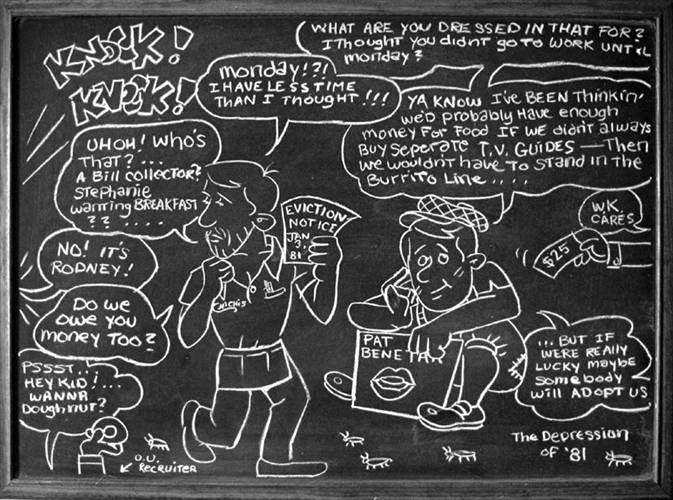 KNOCK!
KNOCK!
WHAT ARE YOU DRESSED IN THAT FOR?
I Thought you didnt go to WORK UNTIL
monday?
monday!?!
I HAVE LESS TIME
THAN I THOUGHT!!!
YA KNOW I've BEEN THinkin'
we'd probably Have enough
money For Food IF we didn't always
Buy Seperate T.V. GUIDES — Then
we wouldn't Have To Stand in the
Burrito Line....
UHOH! WHO'S
THAT?...
A Bill collector?
Stephanie
wanting BREAKFAST
??.....
EVICTION
NOTICE
JAN
3,
81
W.K.
CARES
$25
NO! IT'S
RODNEY!
CHICHIS
Do we
owe you
money Too?
PAT
BENETA
... BUT IF
WERE REALLY
LUCKY maybe
Somebody
will ADOPT US
PSSST..
HEY KID!...
WANNA
Doughnut?
O.U.
RECRUITER
The Depression
of '81